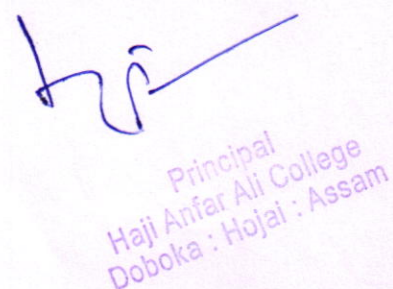 Principal
Haji Anfar Ali College
Doboka : Hojai : Assam